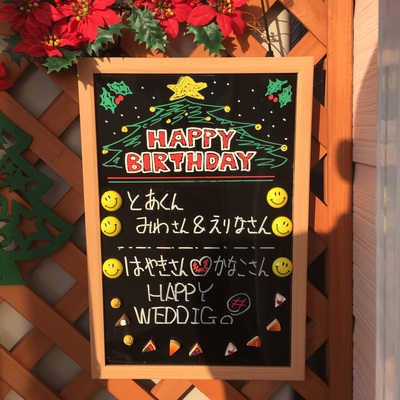 HAPPY
BIRTHDAY
とあくん
みゆさん&えりなさん
はやきさん かなこさん
HAPPY
WEDDIG